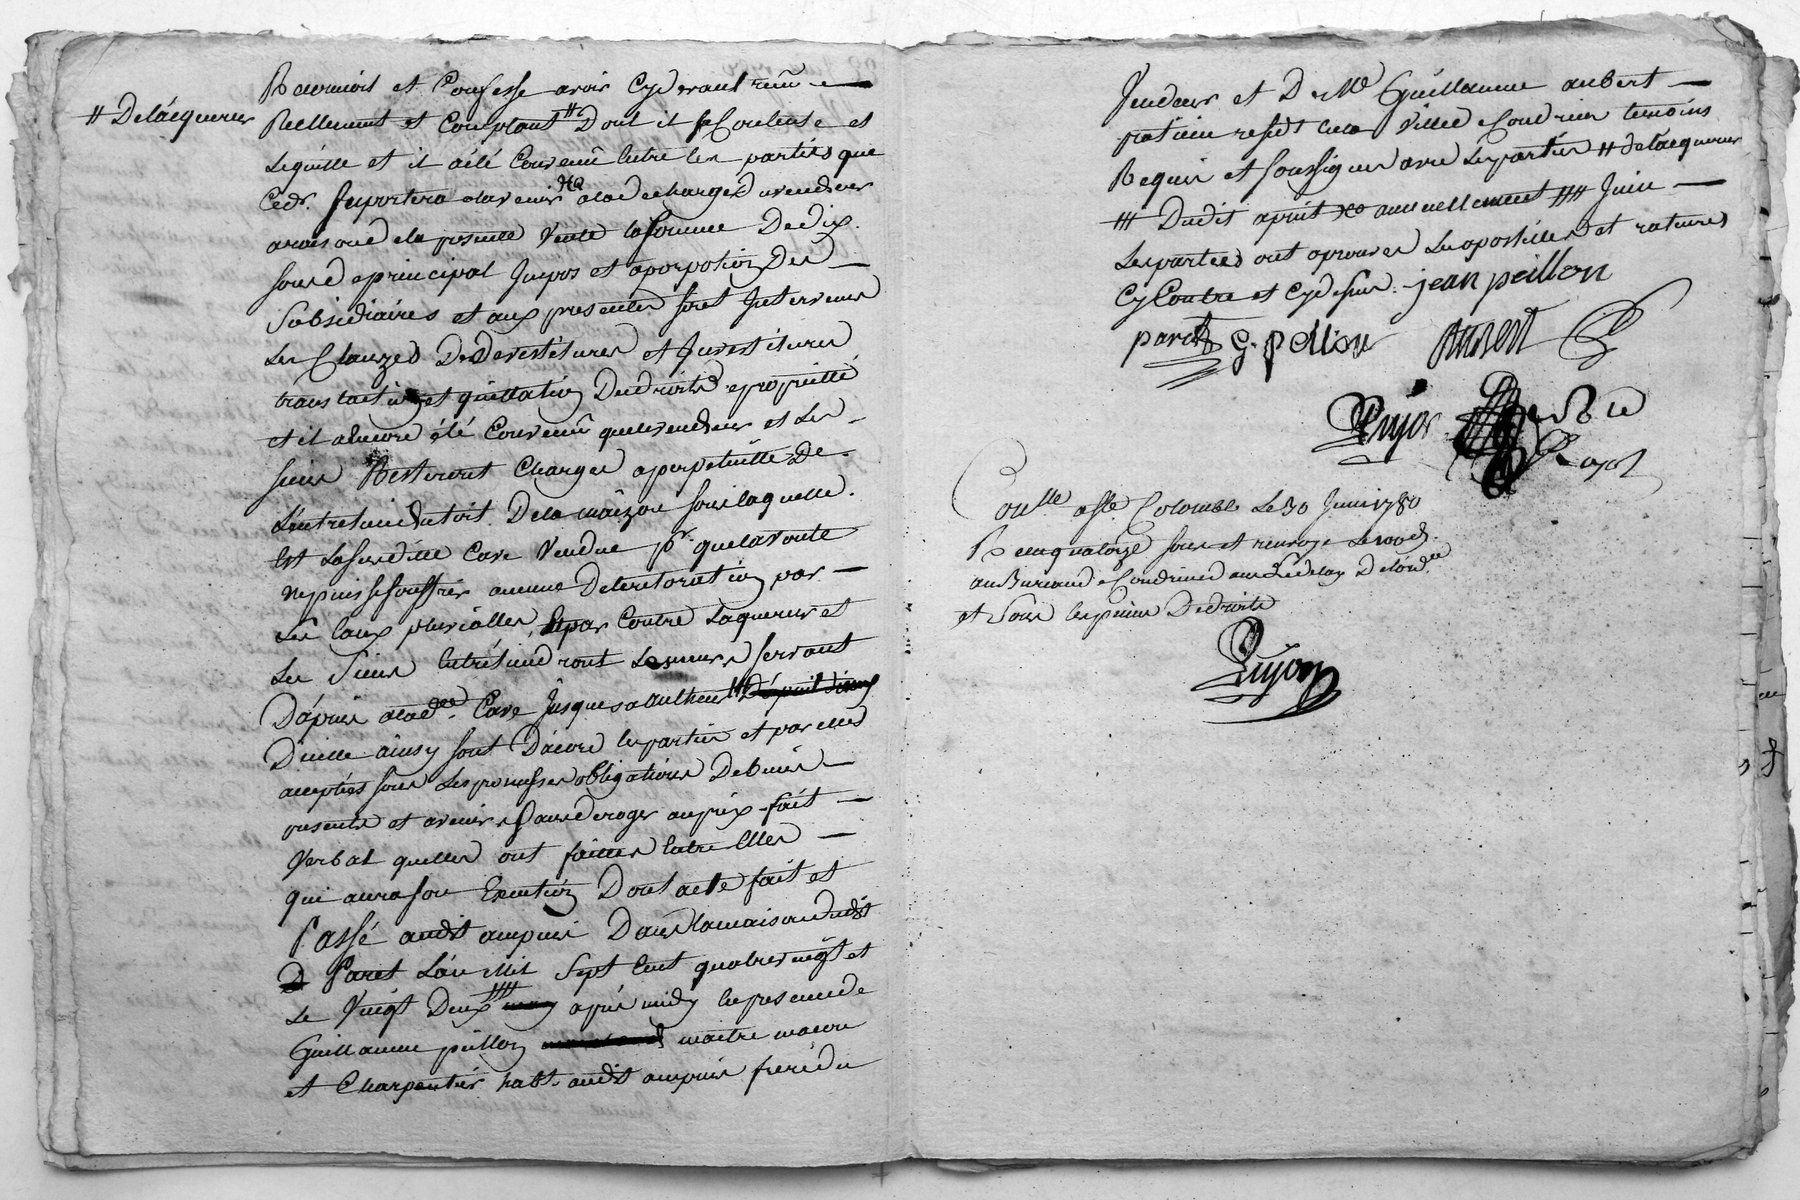 # Delacquereur
Reconnoit et Confesse avoir Cydevant reçu
Reellement et Comptant # Dont il se Contente et
Lequitte et il a été Convenu Entre les parties que
Led. Suportera alavenir alad echarge du vendeur
la presente Vente lasomme De dix
sous deprincipal Impos et aporpotion Des
Subsidiaires et aux presentes sont Intervenus
Les Clauzes De Devestitures et Investitures
translation et quittation Dedroits epropriette
et il aEncore été Convenu quelevendeur et Les
siens Resteront Charges aperpetuitté De
Lentretien dutoit Dela maizon souslaquelle
Est Lasusditte Cave Vendue pr. quelavoute
nepuisse souffrir aucune Deterioration par
Les Eaux pluvialles, Et par Contre Laquereur et
Les Siens Entretiendront Les murs servant
D'apuis alad. Cave Jusquesa autheur ###
Dicelle ainsy sont D'acord les parties et par elles
acceptés sous Les promesses obligations De biens
presents et avenir Sans deroger auprix-fait
Verbal quelles ont faittes Entre Elles
qui aura son Execution Dont acte fait et
Passé audit ampuis Dans lamaison dudit
Paret L'an Mil Sept Cent quatrevingt et
Le Vingt Deux #### après midy En presence de
Guillaume peillon maitre maçon
et Charpentier habt. audit ampuis frere du
Vendeur et De Me Guillaume aubert
praticien resident Enla Ville de Condrieu temoins
Requis et soussignes avec Les parties # delacquereur
### Dudit apuit annuellement #### Juin
Les parties ont aprouves Les apostilles et ratures
Cy Contre et Cydessus. jean peillon
paret G. pellion aubert
Pujos
Conlle aste Colombe Le 30 Juin 1780
Rx cinquatorze sous et renvoye Le 100 d.
auBureau de Condrieu dans Ledelay Delord.ce
et Sous les peines Dedroits
Pujos